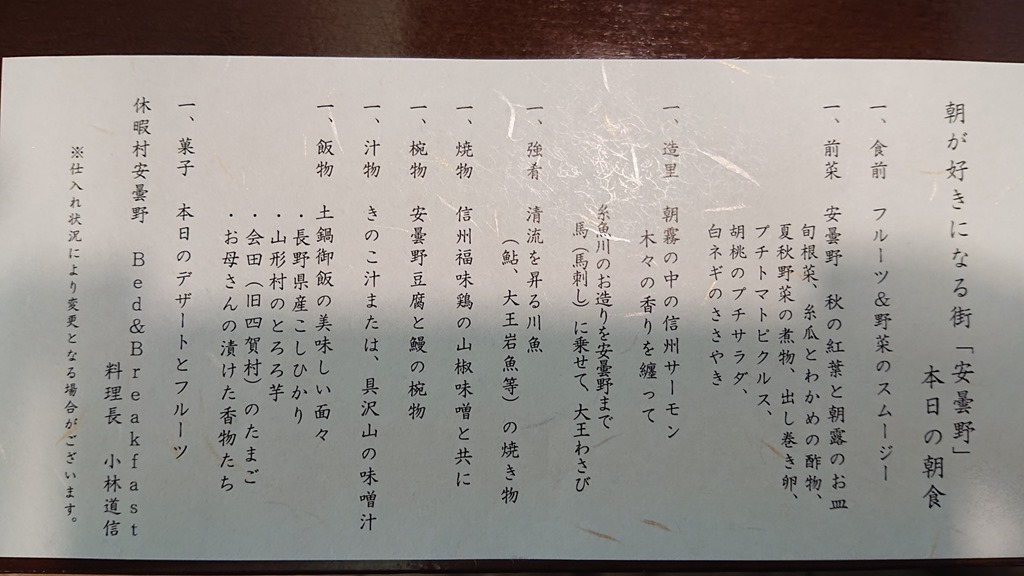 朝が好きになる街「安曇野」
本日の朝食
一、食前　フルーツ＆野菜のスムージー
一、前菜　安曇野　秋の紅葉と朝露のお皿
旬根菜、糸瓜とわかめの酢物、
夏秋野菜の煮物、出し巻き卵、
プチトマトピクルス、
胡桃のプチサラダ、
白ネギのささやき
一、造里　朝霧の中の信州サーモン
木々の香りを纏って
糸魚川のお造りを安曇野まで
馬（馬刺し）に乗せて、大王わさび
一、強肴　清流を昇る川魚
（鮎、大王岩魚等）の焼き物
一、焼物　信州福味鶏の山椒味噌と共に
一、椀物　安曇野豆腐と鰻の椀物
一、汁物　きのこ汁または、具沢山の味噌汁
一、飯物　土鍋御飯の美味しい面々
・長野県産こしひかり
・山形村のとろろ芋
・会田（旧四賀村）のたまご
・お母さんの漬けた香物たち
一、菓子　本日のデザートとフルーツ
休暇村安曇野　Ｂｅｄ＆Ｂｒｅａｋｆａｓｔ
料理長　小林道信
※仕入れ状況により変更となる場合がございます。